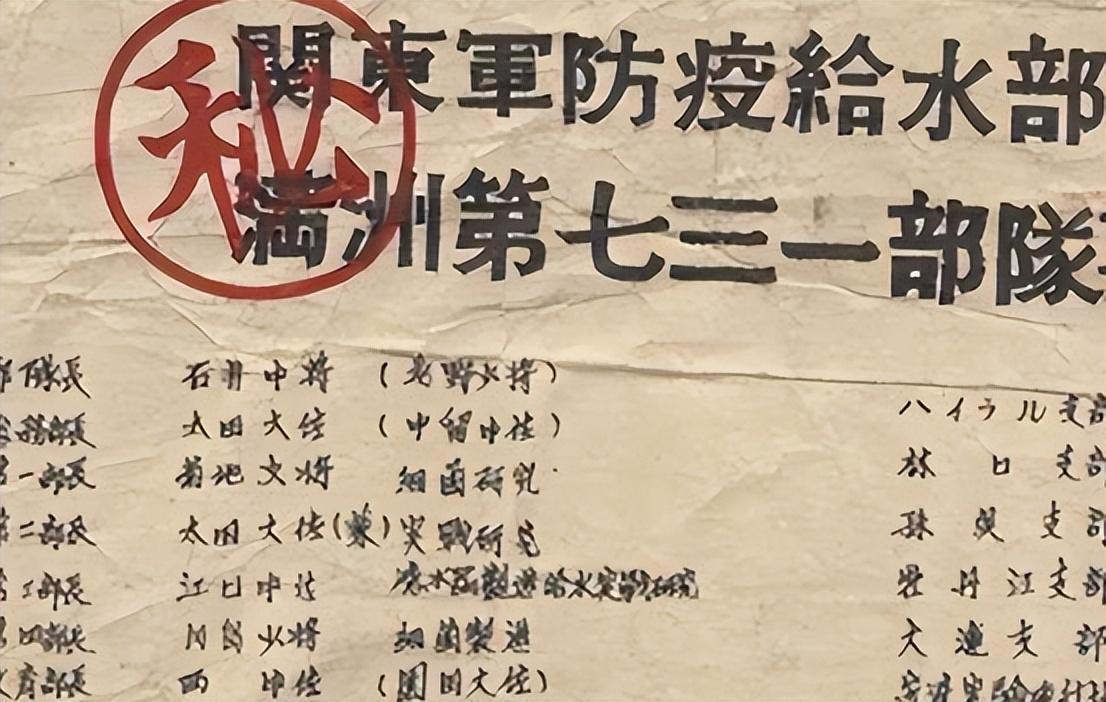 秘
関東軍防疫給水部
満州第七三一部隊
部隊長 石井中将 (北野少将)
総務部長 太田大佐 (中留中佐)
第一部長 菊地少将 細菌研究
第二部長 太田大佐(兼) 実戦研究
第三部長 江口中佐 濾水器製造給水実戦研究
第四部長 川島少将 細菌製造
教育部長 西 中佐 (園田大佐)
ハイラル支部
林口支部
孫呉支部
牡丹江支部
大連支部